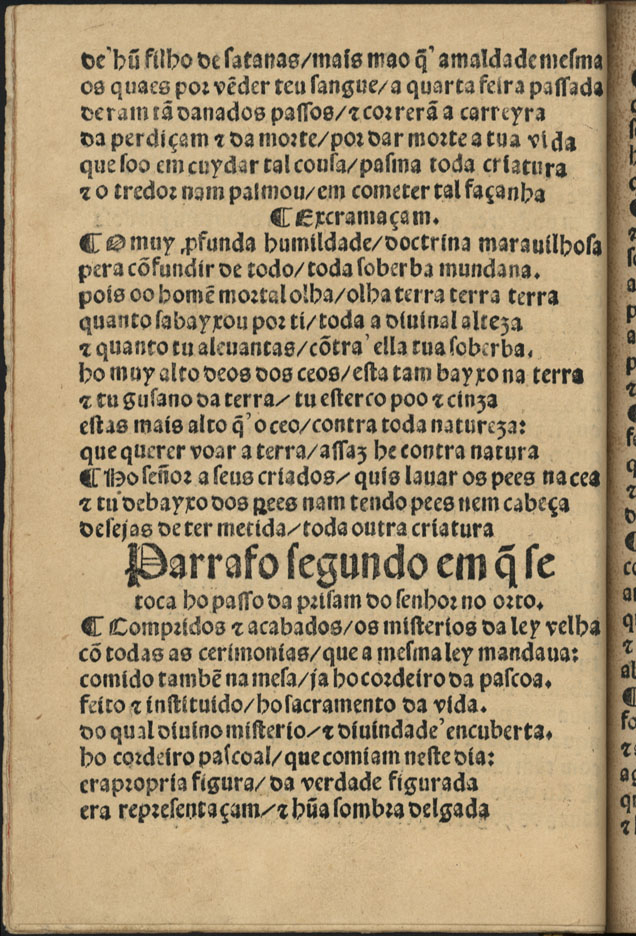 de hũ filho de satanas/mais mao q̃ amaldade mesma
os quaes por vẽder teu sangue/a quarta feira passada
deram tã danados passos/⁊ correrã a carreyra
da perdiçam ⁊ da morte/por dar morte a tua vida
que soo em cuydar tal cousa/pasma toda criatura
⁊ o tredor nam palmou/em cometer tal façanha
¶ Excramaçam.
¶ O muy ꝓfunda humildade/doctrina marauilhosa
pera cõfundir de todo/toda soberba mundana.
pois oo homẽ mortal olha/olha terra terra terra
quanto sabayxou por ti/toda a diuinal alteza
⁊ quanto tu aleuantas/cõtra ella tua soberba.
ho muy alto deos dos ceos/esta tam bayxo na terra
⁊ tu gusano da terra/ tu esterco poo ⁊ cinza
estas mais alto q̃ o ceo/contra toda natureza:
que querer voar a terra/assaz he contra natura
¶ Ho señor a seus criados/ quis lauar os pees na cea
⁊ tu debayxo dos Rees nam tendo pees nem cabeça
desejas de ter metida/toda outra criatura
Parrafo segundo em q̃ se
toca ho passo da prisam do senhor no orto.
¶ Compridos ⁊ acabados/os misterios da ley velha
cõ todas as cerimonias/que a mesma ley mandaua:
comido tambẽ na mesa/ja ho cordeiro da pascoa.
feito ⁊ instituido/ho sacramento da vida.
do qual diuino misterio/⁊ diuindade encuberta.
ho cordeiro pascoal/que comiam neste dia:
era propria figura/da verdade figurada
era representaçam/⁊ hũa sombra delgada